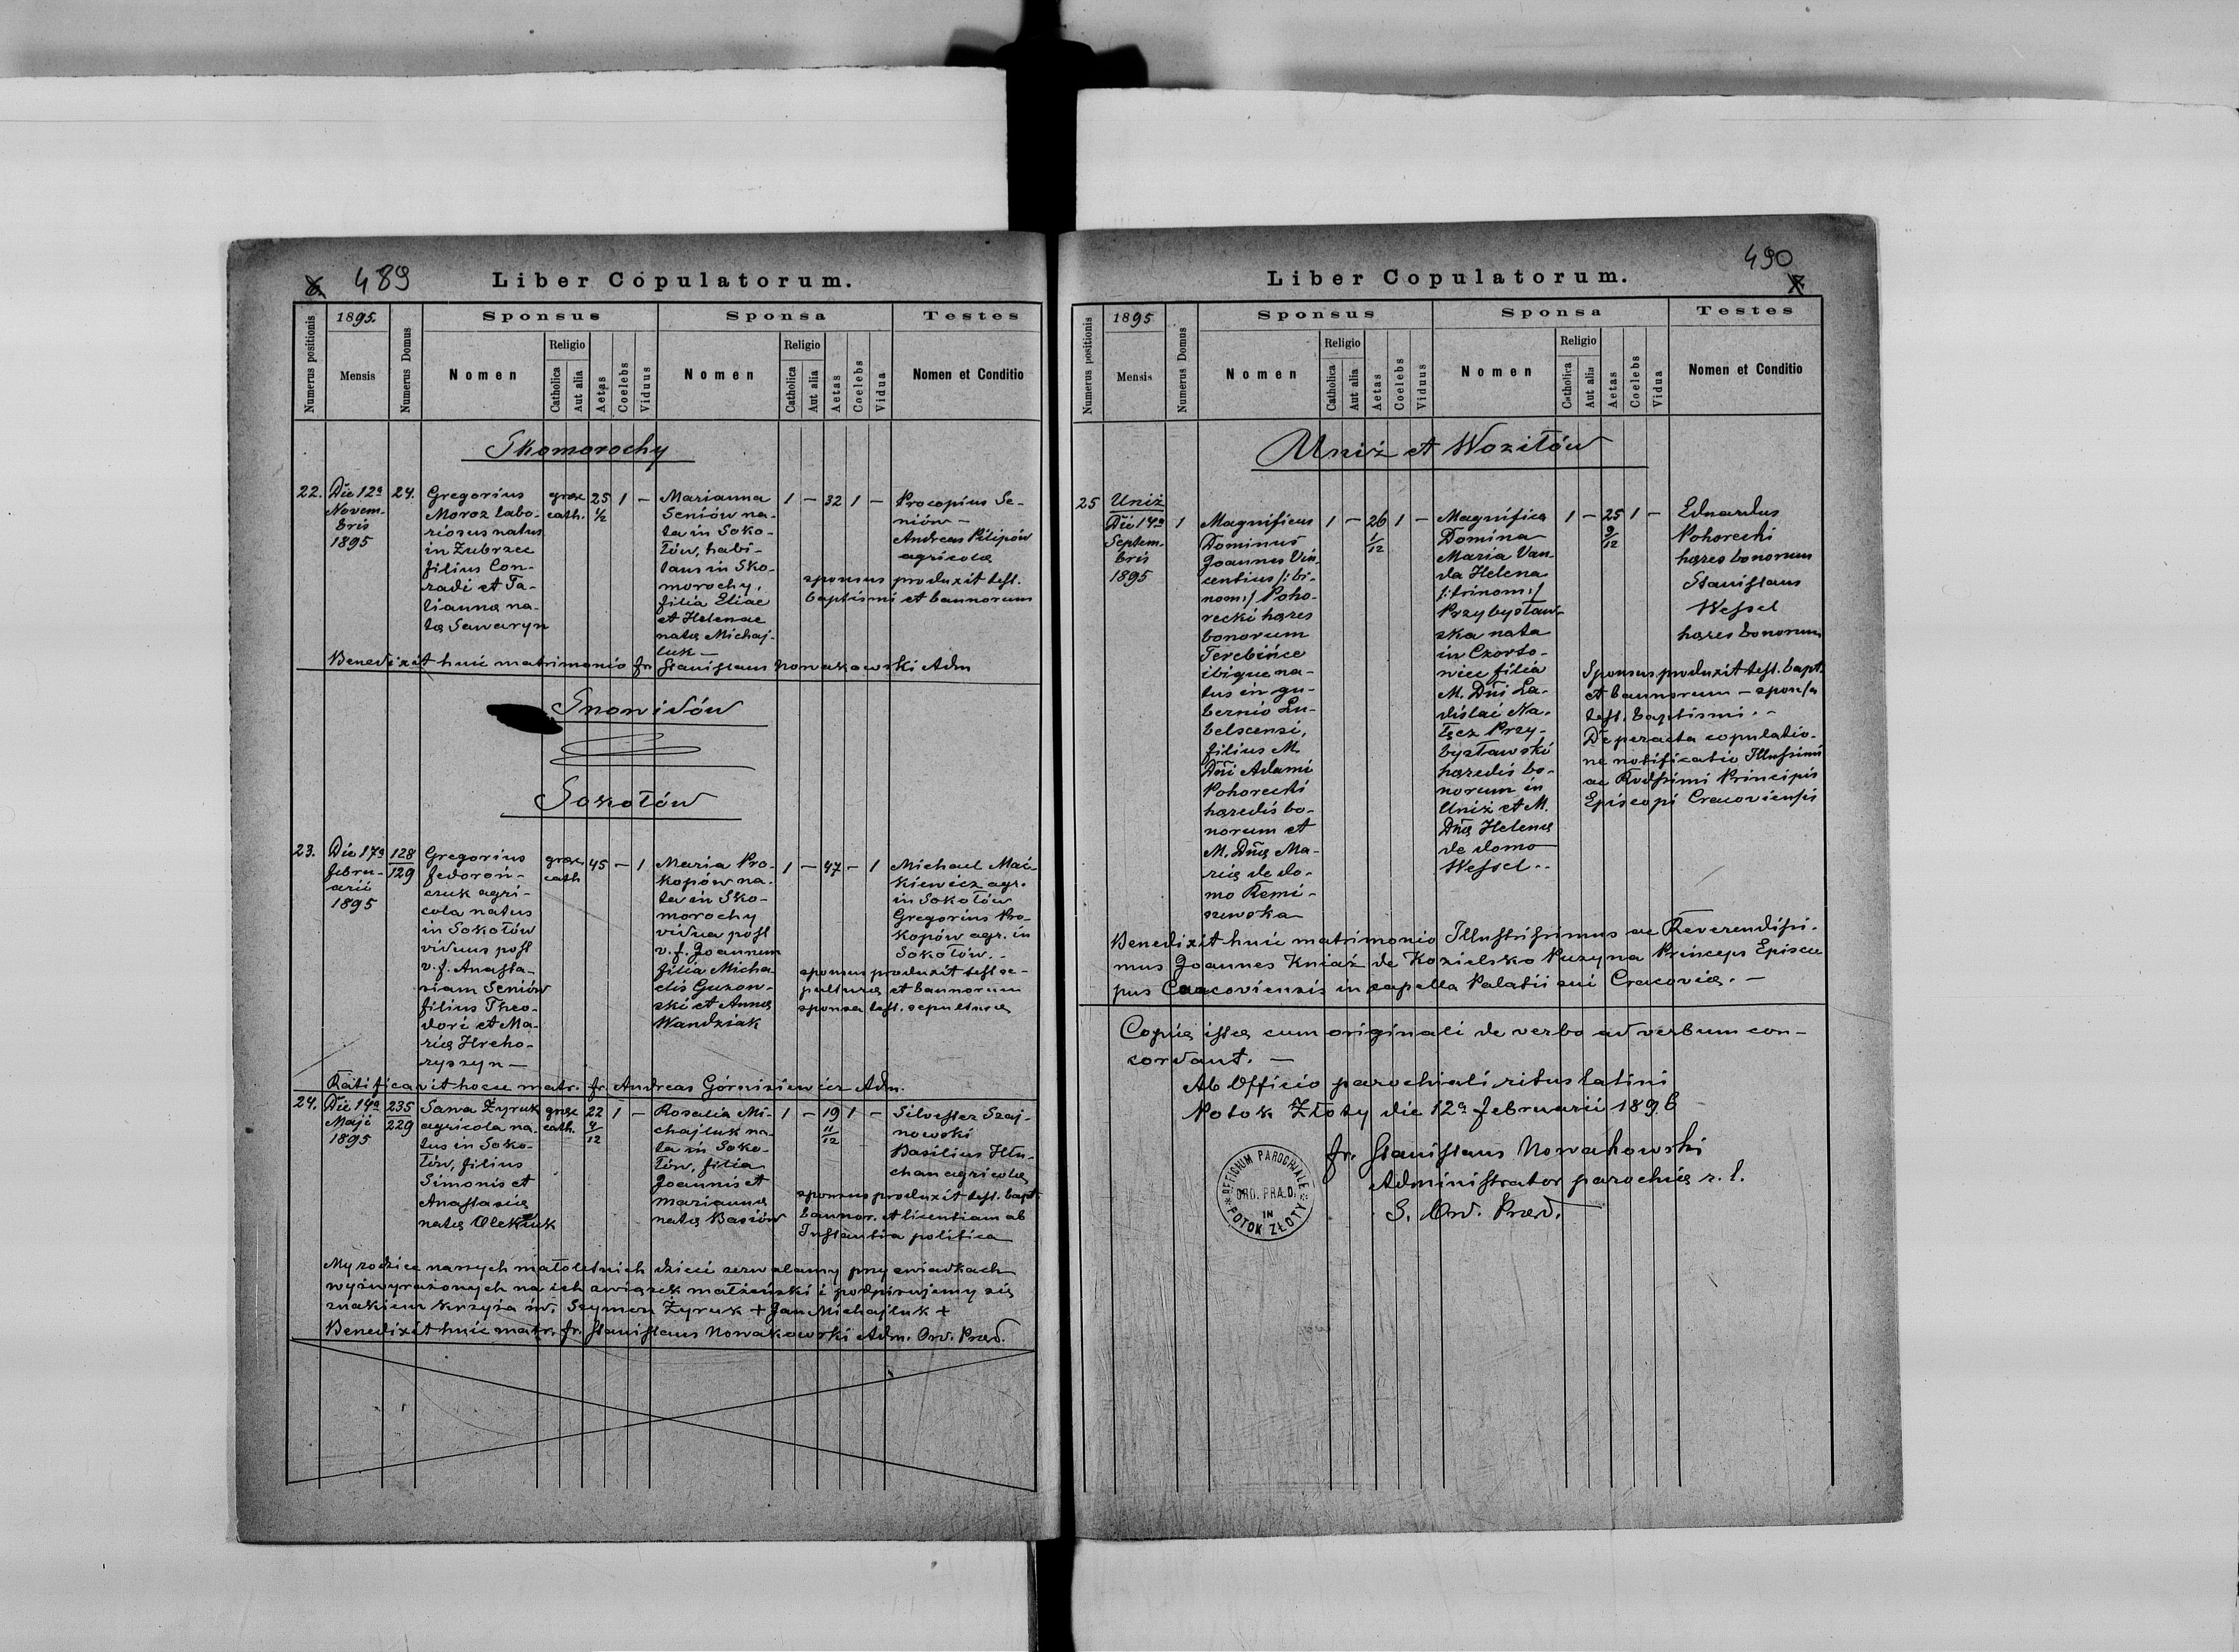 489
Liber Copulatorum.
Numerus positionis
1895.
Mensis
Numerus Domus
Sponsus
Nomen
Religio
Catholica
Aut alia
Aetas
Coelebs
Viduus
Sponsa
Nomen
Religio
Catholica
Aut alia
Aetas
Coelebs
Vidua
Testes
Nomen et Conditio
Skomorochy
22.
Die 12a
Novem-
bris
1895
24.
Gregorius
Moroz labo-
riosus natus
in Zubrzec
filius Con-
radi et Ta-
tianna na-
ta Sawaryn
graec
cath.
25
1/2
1
—
Marianna
Seniów na-
ta in Soko-
łów, habi-
tans in Sko-
morochy,
filia Eliae
et Helenae
nata Michaj-
luk —
1
—
32
1
—
Procopius Se-
niów —
Andreas Pilipów
agricola
sponsus produxit test.
baptismi et bannorum
Benedixit huic matrimonio fr. Stanislaus Nowakowski Adm
Snowidów
Sokołów
23.
Die 17a
febru-
arii
1895
128
129
Gregorius
Fedoroń-
czuk agri-
cola natus
in Sokołów
viduus post
v. f. Anasta-
siam Seniów
filius Theo-
dori et Ma-
ria Hreho-
ryszyn —
graec
cath
45
—
1
Maria Pro-
kopów na-
ta in Sko-
morochy
vidua post
v. f. Joannem
filia Micha-
elis Guzow-
ski et Anna
Wandziak
1
—
47
—
1
Michael Mać-
kiewicz agr.
in Sokołów
Gregorius Pro-
kopów agr. in
Sokołów. -
sponsus produxit test se-
pultura et bannorum
sponsa test. sepultura
Ratificavit hocce matr. fr. Andreas Górnisiewicz Adm.
24.
Die 14a
Maji
1895
235
229
Sawa Żyruk
agricola na-
tus in Soko-
łów, filius
Simonis et
Anastasia
nata Olekšuk
graec
cath.
22
4/12
1
—
Rosalia Mi-
chajluk na-
ta in Soko-
łów, filia
Joannis et
Marianna
nata Basiów
1
—
19
11/12
1
—
Silvester Szaj-
nowski
Basilius Hłu-
chan agricola
sponsus produxit test. bapt.
bannor. et licentiam ab
Instantia politica
My rodzice naszych małoletnich dzieci zezwalamy przy świadkach
wyżwyrażonych na ich związek małżeński i podpisujemy się
znakiem krzyża św. Szymon Żyruk + Jan Michajluk +
Benedixit huic matr. fr. Stanislaus Nowakowski Adm. Ord. Praed.
490
Liber Copulatorum.
Numerus positionis
1895
Mensis
Numerus Domus
Sponsus
Nomen
Religio
Catholica
Aut alia
Aetas
Coelebs
Viduus
Sponsa
Nomen
Religio
Catholica
Aut alia
Aetas
Coelebs
Vidua
Testes
Nomen et Conditio
Uniż et Woziłów
25
Uniż
Die 14a
Septem-
bris
1895
1
Magnificus
Dominus
Joannes Vin-
centius /: bi-
nom :/ Poho-
recki hares
bonorum
Terebińce
ibique na-
tus in gu-
bernio Lu-
belscensi,
filius M.
Dni Adami
Pohorecki
haredis bo-
norum et
M. Dna Ma-
ria de do-
mo Remi-
szewska
1
—
26
1/12
1
—
Magnifica
Domina
Maria Van-
da Helena
/: trinom :/
Przybysław-
ska nata
in Czorto-
wiec filia
M. Dni La-
dislai Na-
łęcz Przy-
bysławski
haredis bo-
norum in
Uniż et M.
Dna Helena
de domo
Wessel. -
1
—
25
9/12
1
—
Eduardus
Pohorecki
hares bonorum
Stanislaus
Wessel
hares bonorum
Sponsus produxit test. bapt.
et bannorum — sponsa
test. baptismi. -
De peracta copulatio-
ne notificatio Illussimi
ac Rvdssimi Principis
Episcopi Cracoviensis
Benedixit huic matrimonio Illustrissimus ac Reverendissi-
mus Joannes Kniaź de Kozielsko Puzyna Princeps Episco
pus Cracoviensis in capella Palatii sui Cracovia. —
Copia ista cum originali de verbo ad verbum con-
cordant. —
Ab Officio parochiali ritus latini
Potok Złoty die 12a februarii 1896
fr. Stanislaus Nowakowski
Administrator parochia r. l.
S. Ord. Praed.
OFFICIUM PAROCHIALE
ORD. PRÆD.
IN
POTOK ZŁOTY